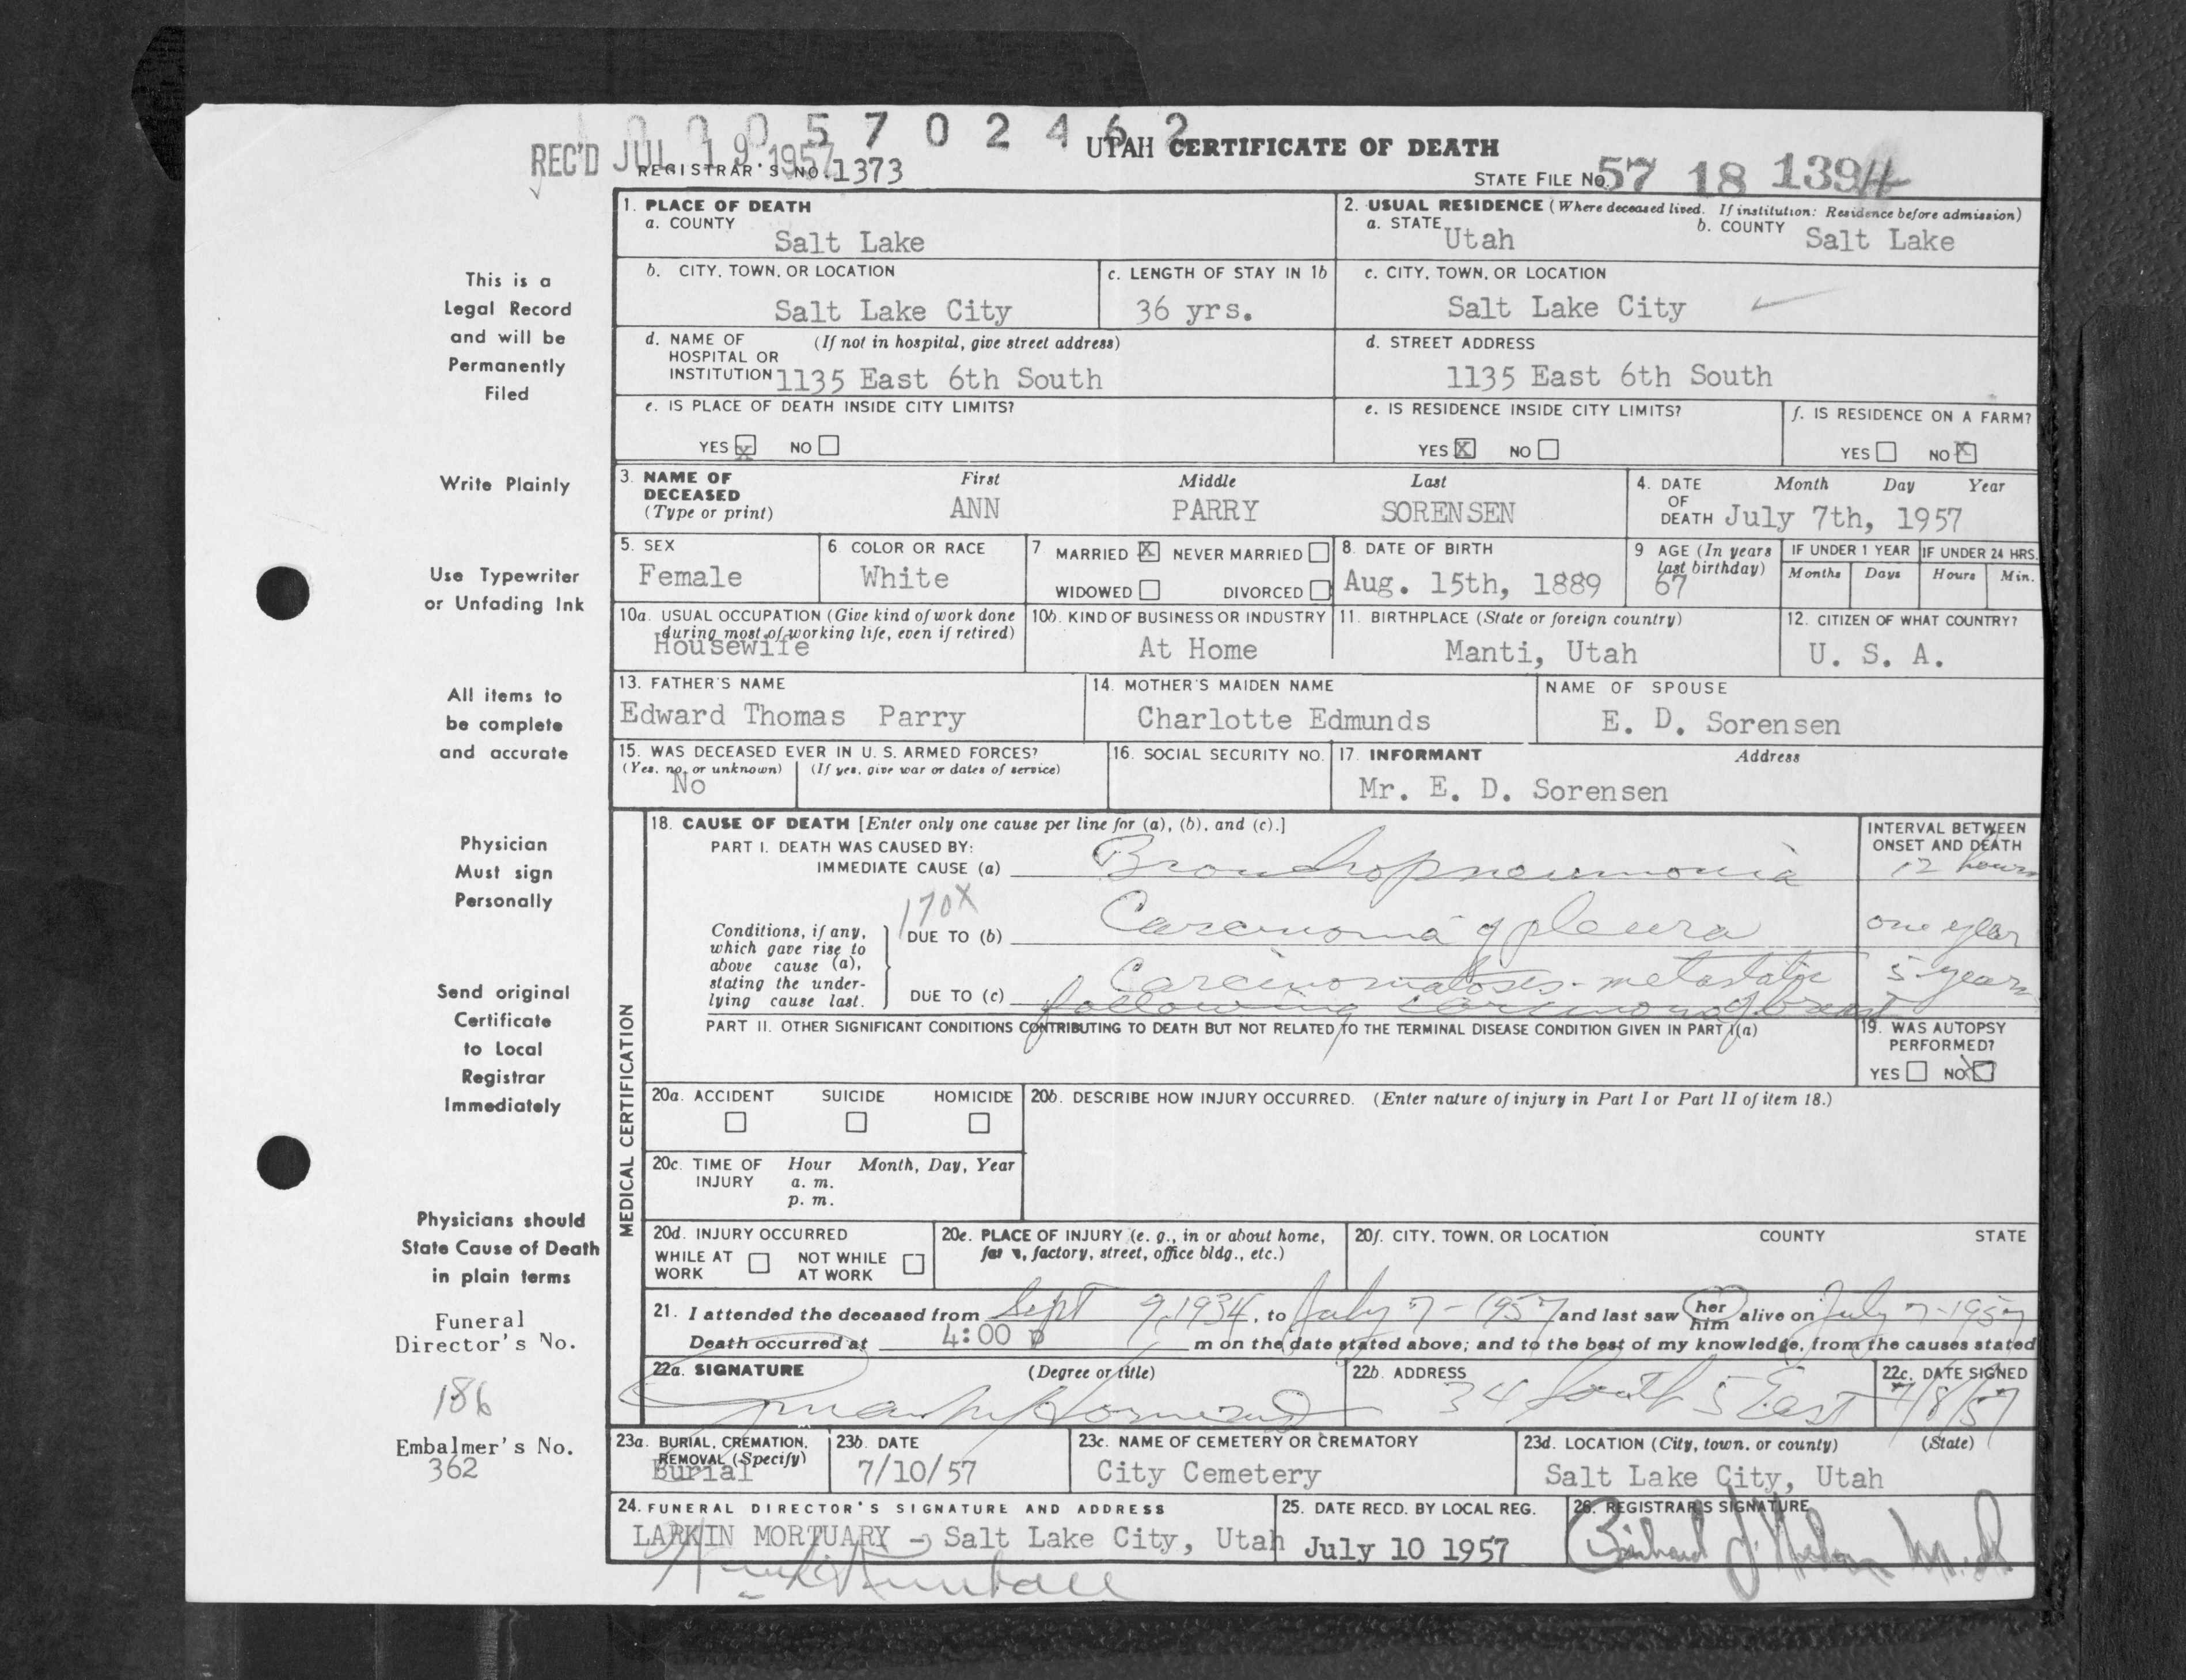 0 0 0 5 7 0 2 4 6 2
REC'D JUL 19 1957
UTAH CERTIFICATE OF DEATH
REGISTRAR'S NO. 1373
STATE FILE NO. 57 18 1394
1. PLACE OF DEATH
a. COUNTY
Salt Lake
2. USUAL RESIDENCE (Where deceased lived. If institution: Residence before admission)
a. STATE Utah
b. COUNTY Salt Lake
b. CITY, TOWN, OR LOCATION
Salt Lake City
c. LENGTH OF STAY IN 1b
36 yrs.
c. CITY, TOWN, OR LOCATION
Salt Lake City
d. NAME OF HOSPITAL OR INSTITUTION (If not in hospital, give street address)
1135 East 6th South
d. STREET ADDRESS
1135 East 6th South
e. IS PLACE OF DEATH INSIDE CITY LIMITS?
YES X NO
e. IS RESIDENCE INSIDE CITY LIMITS?
YES X NO
f. IS RESIDENCE ON A FARM?
YES NO X
3. NAME OF DECEASED (Type or print)
First Middle Last
ANN PARRY SORENSEN
4. DATE OF DEATH Month Day Year
July 7th, 1957
5. SEX
Female
6. COLOR OR RACE
White
7 MARRIED X NEVER MARRIED
WIDOWED DIVORCED
8. DATE OF BIRTH
Aug. 15th, 1889
9 AGE (In years last birthday)
67
IF UNDER 1 YEAR
Months Days
IF UNDER 24 HRS.
Hours Min.
10a. USUAL OCCUPATION (Give kind of work done during most of working life, even if retired)
Housewife
10b. KIND OF BUSINESS OR INDUSTRY
At Home
11. BIRTHPLACE (State or foreign country)
Manti, Utah
12. CITIZEN OF WHAT COUNTRY?
U. S. A.
13. FATHER'S NAME
Edward Thomas Parry
14. MOTHER'S MAIDEN NAME
Charlotte Edmunds
NAME OF SPOUSE
E. D. Sorensen
15. WAS DECEASED EVER IN U. S. ARMED FORCES?
(Yes, no, or unknown) (If yes, give war or dates of service)
No
16. SOCIAL SECURITY NO.
17. INFORMANT Address
Mr. E. D. Sorensen
MEDICAL CERTIFICATION
18. CAUSE OF DEATH [Enter only one cause per line for (a), (b), and (c).]
INTERVAL BETWEEN ONSET AND DEATH
PART I. DEATH WAS CAUSED BY:
IMMEDIATE CAUSE (a) Bronchopneumonia 12 hours
170X
Conditions, if any, which gave rise to above cause (a), stating the underlying cause last.
DUE TO (b) Carcinoma of pleura one year
DUE TO (c) Carcinomatosis - metastatic 5 years
following carcinoma of breast
PART II. OTHER SIGNIFICANT CONDITIONS CONTRIBUTING TO DEATH BUT NOT RELATED TO THE TERMINAL DISEASE CONDITION GIVEN IN PART I(a)
19. WAS AUTOPSY PERFORMED?
YES NO X
20a. ACCIDENT SUICIDE HOMICIDE
20b. DESCRIBE HOW INJURY OCCURRED. (Enter nature of injury in Part I or Part II of item 18.)
20c. TIME OF INJURY Hour Month, Day, Year
a. m.
p. m.
20d. INJURY OCCURRED
WHILE AT WORK NOT WHILE AT WORK
20e. PLACE OF INJURY (e. g., in or about home, farm, factory, street, office bldg., etc.)
20f. CITY, TOWN, OR LOCATION COUNTY STATE
21. I attended the deceased from Sept 9, 1934, to July 7 - 1957 and last saw her him alive on July 7 - 1957
Death occurred at 4:00 p m on the date stated above; and to the best of my knowledge, from the causes stated
22a. SIGNATURE (Degree or title)
22b. ADDRESS
34 South 5 East
22c. DATE SIGNED
7/8/57
23a. BURIAL, CREMATION, REMOVAL (Specify)
Burial
23b. DATE
7/10/57
23c. NAME OF CEMETERY OR CREMATORY
City Cemetery
23d. LOCATION (City, town, or county) (State)
Salt Lake City, Utah
24. FUNERAL DIRECTOR'S SIGNATURE AND ADDRESS
LARKIN MORTUARY - Salt Lake City, Utah
25. DATE RECD. BY LOCAL REG.
July 10 1957
26. REGISTRAR'S SIGNATURE
This is a
Legal Record
and will be
Permanently
Filed
Write Plainly
Use Typewriter
or Unfading Ink
All items to
be complete
and accurate
Physician
Must sign
Personally
Send original
Certificate
to Local
Registrar
Immediately
Physicians should
State Cause of Death
in plain terms
Funeral
Director's No.
186
Embalmer's No.
362